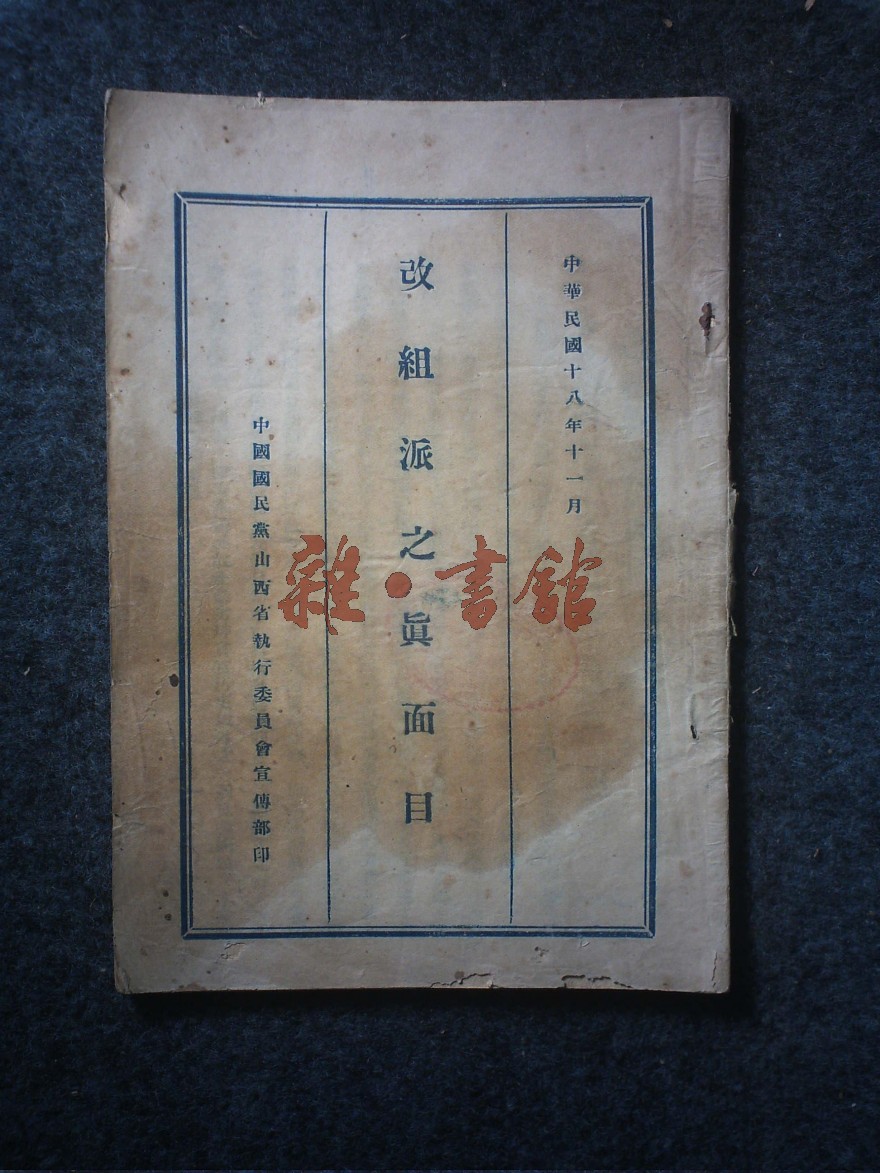 中華民國十八年十一月
改組派之眞面目
中國國民黨山西省執行委員會宣傳部印
雜·書館